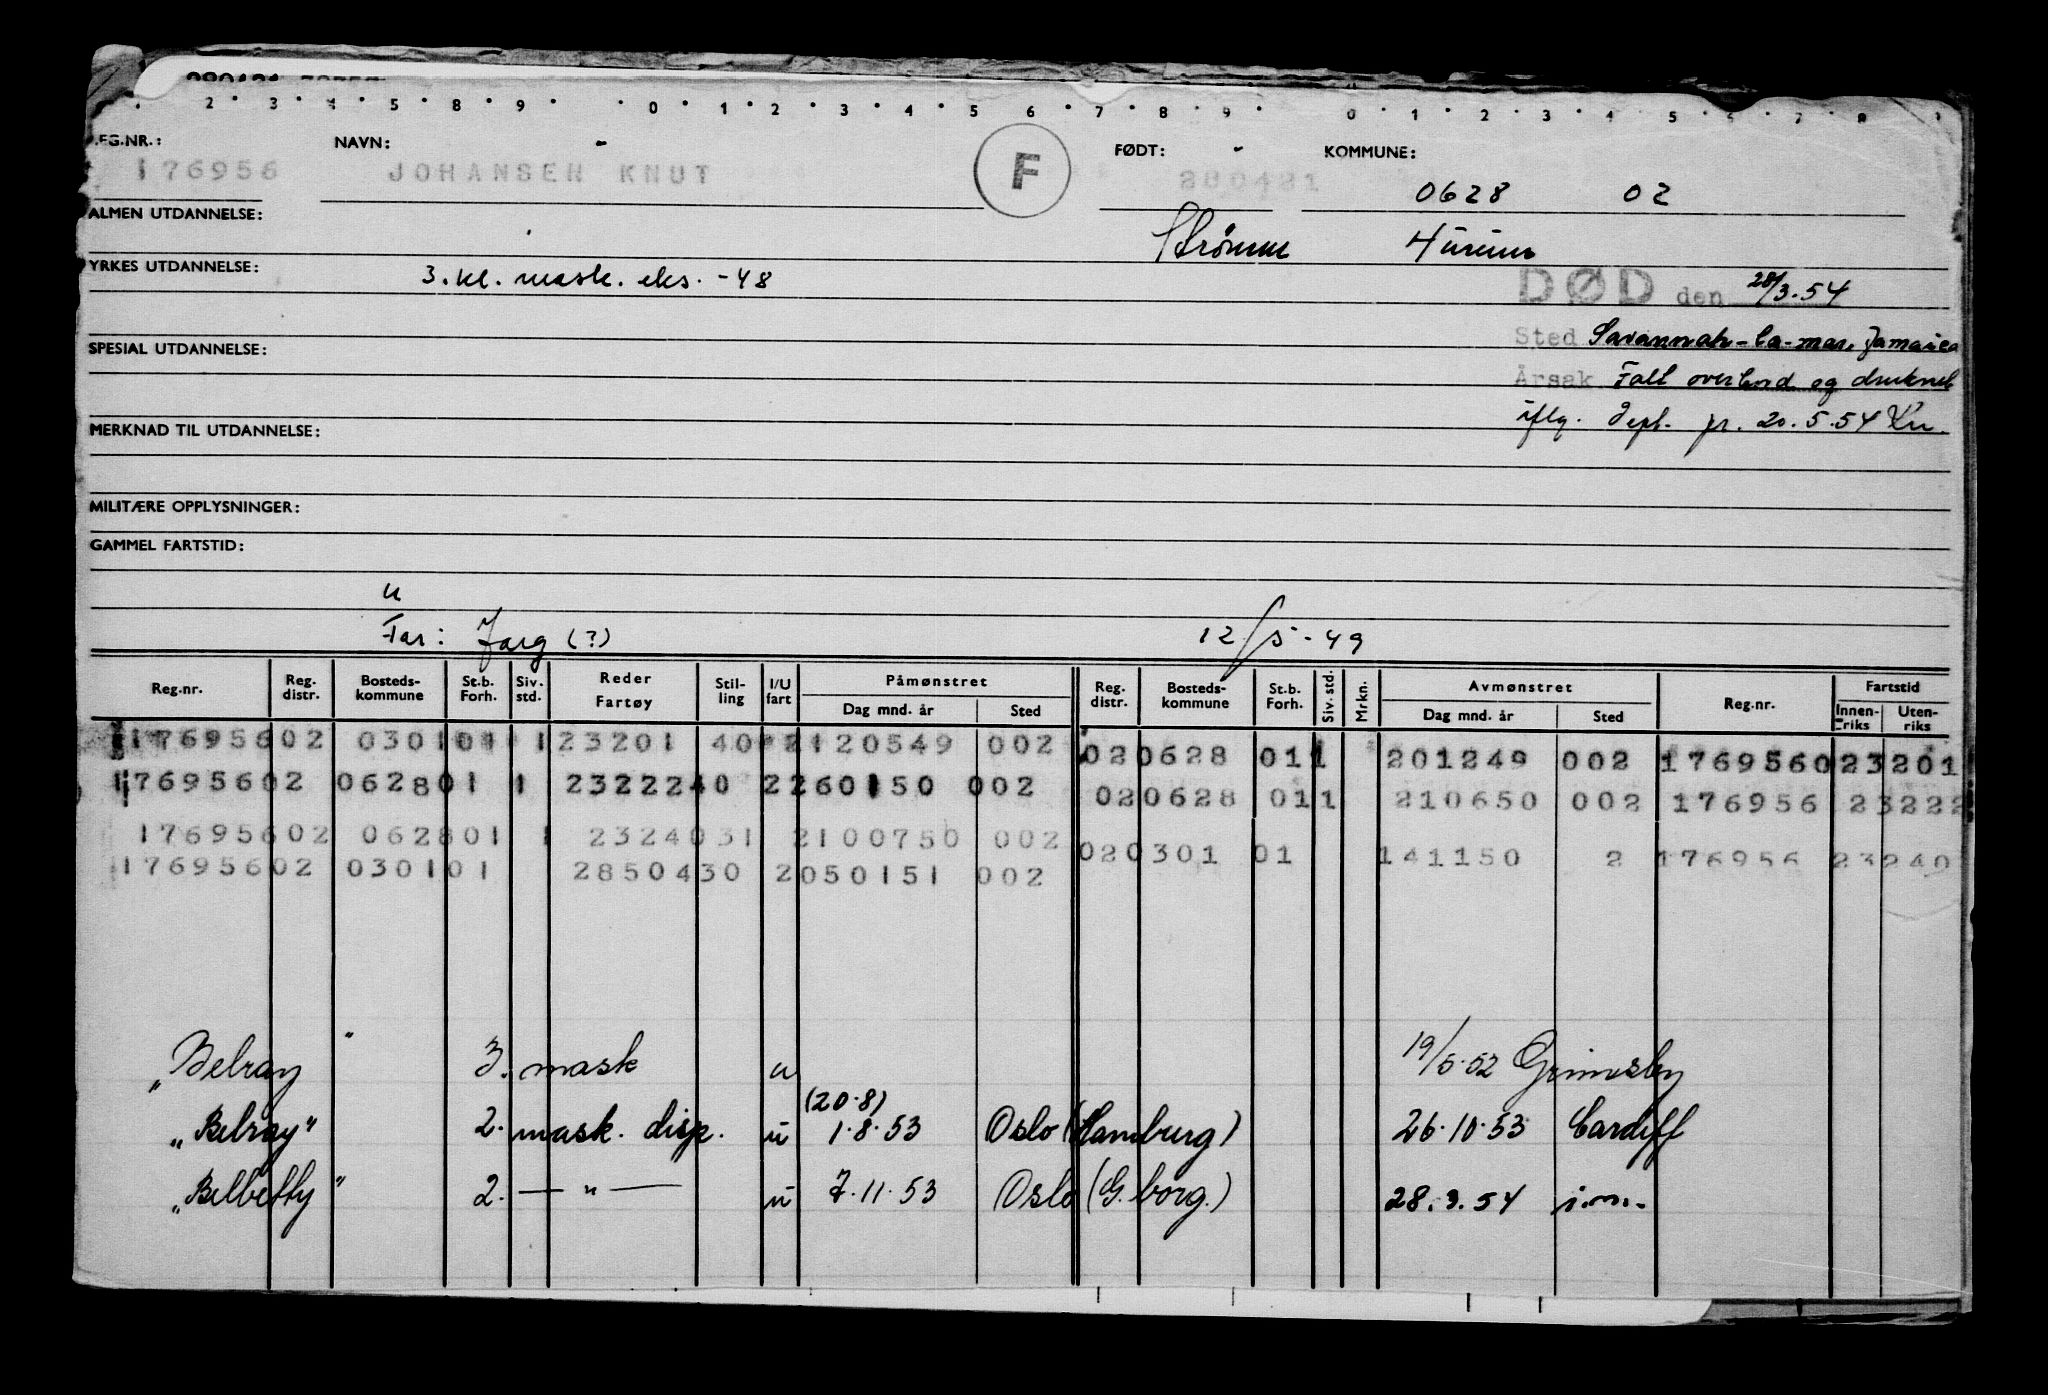 2 3 4 5 8 9 0 1 2 3 4 5 6 7 8 9 0 1 2 3 4 5 6 7 8
REG.NR.: NAVN: FØDT: KOMMUNE:
176956 JOHANSEN KNUT F 280421 0628 02
ALMEN UTDANNELSE: Strömm Hurum
YRKES UTDANNELSE: 3. kl. mask. eks. -48
DØD den 28/3.54
SPESIAL UTDANNELSE: Sted Savannah-la-mar, Jamaica
Årsak Falt overbord og druknet
MERKNAD TIL UTDANNELSE: iflg. Dept. pr. 20.5.54
MILITÆRE OPPLYSNINGER:
GAMMEL FARTSTID:
u
Far: Jarg (?) 12/5-49
Reg.nr. Reg. distr. Bosteds-kommune St.b. Forh. Siv. std. Reder Fartøy Stil-ling I/U fart Påmønstret Dag mnd. år Sted Reg. distr. Bosteds-kommune St.b. Forh. Siv. std. Mrkn. Avmønstret Dag mnd. år Sted Reg.nr. Fartstid Innen-riks Uten-riks
17695602 030101 1 23201 40 2120549 002 020628 011 201249 002 1769560 23201
17695602 062801 1 2322240 2260150 002 020628 011 210650 002 176956 23222
17695602 062801 1 2324031 2100750 002 020301 01 141150 2 176956 23240
17695602 030101 2850430 2050151 002
"Belray" 3. mask u 19/5.52 Grimsby
(20.8)
"Belray" 2. mask. disp. u 1.8.53 Oslo (Hamburg) 26.10.53 Cardiff
"Belbetty" 2. — " — u 7.11.53 Oslo (G.borg.) 28.3.54 i.m.